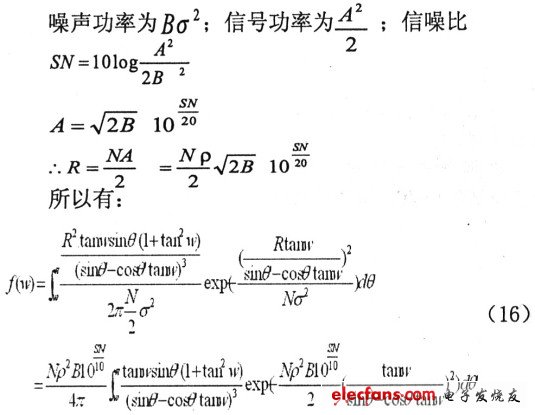 噪声功率为Bσ²；信号功率为A²/2；信噪比
SN=10log A²/(2B  ²)
A=√(2B) 10^(SN/20)
∴R=NA/2 =Nρ/2 √(2B) 10^(SN/20)
所以有：
f(w)=∫ (R²tanwsinθ(1+tan²w)/(sinθ-cosθtanw)³)/(2π(N/2)σ²) exp(-(Rtanw/(sinθ-cosθtanw))²/(Nσ²))dθ
(16)
=Nρ²B10^(SN/10)/(4π) ∫ tanwsinθ(1+tan²w)/(sinθ-cosθtanw)³ exp(-Nρ²B10^(SN/10)/2 (tanw/(sinθ-cosθtanw))²)dθ
elecfans.com 电子发烧友